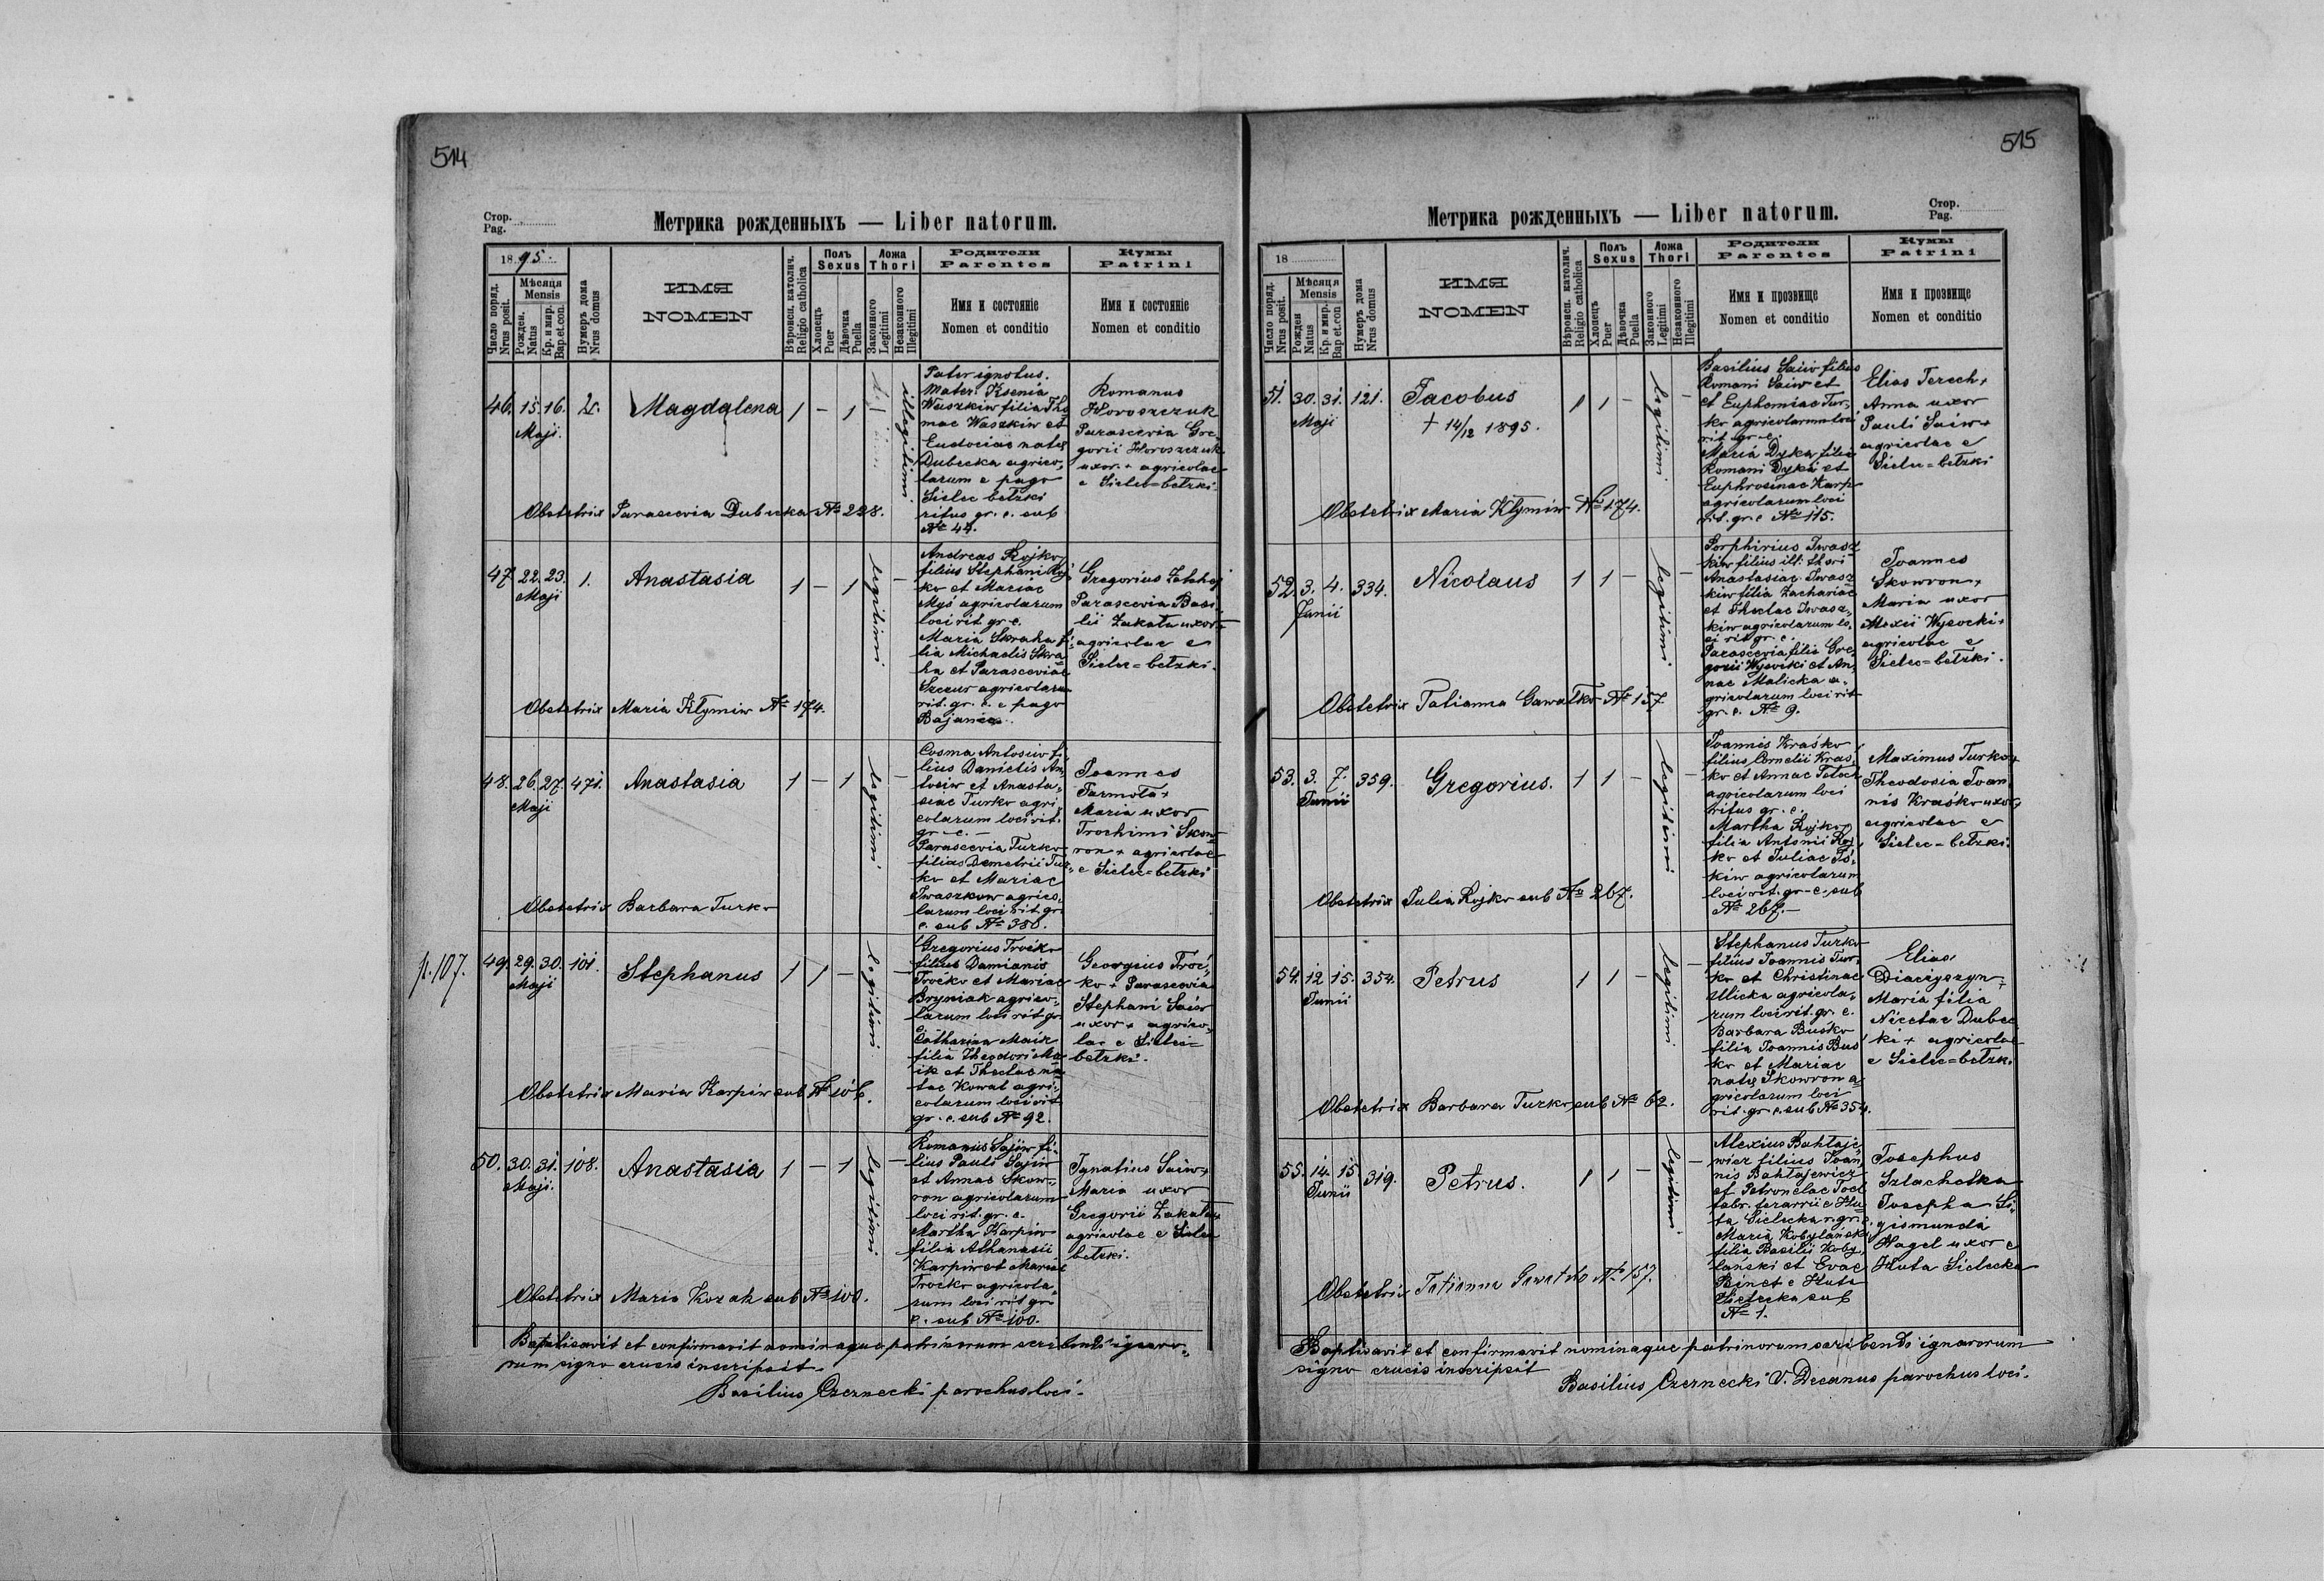 514
Стор.
Pag.
Метрика рожденныхъ — Liber natorum.
1895.
Число поряд.
Nrus posit.
Мѣсяця
Mensis
Рожден.
Natus
Кр. и мир.
Bap. et con.
Нумеръ дома
Nrus domus
ИМЯ
NOMEN
Вѣроисп. католич.
Religio catholica
Полъ
Sexus
Хлопецъ
Puer
Дѣвочка
Puella
Ложа
Thori
Законного
Legitimi
Незаконного
Illegitimi
Родители
Parentes
Имя и состояніе
Nomen et conditio
Кумы
Patrini
Имя и состояніе
Nomen et conditio
46. 15. 16. 2. Magdalena 1 – 1 – illegitimi
Maji.
Pater ignotus.
Mater: Ksenia
Waszkiw filia Tho
mae Waszkiw et
Eudociae natus
Dubecka agrico„
larum e pago
Sielec bełzki
ritus gr. c. sub
№ 44.
Romanus
Horoszczuk
Parascevia Gre
gorii Horoszczuk
uxor + agricolae
e Sielec=bełzki
Obstetrix Parascevia Dubecka № 228.
47 22. 23. 1. Anastasia 1 – 1 legitimi –
Maji
Andreas Rojko
filius Stephani Roj
ko et Mariae
Myś agricolarum
loci rit. gr. c.
Maria Skraha fi„
lia Michaelis Skra
ha et Parasceviae
Szczur agricolarum
rit. gr. c. e pago
Bojanice.
Gregorius
Parascevia Basi
lii Zakała uxor +
agricolae e
Sielec=bełzki.
Obstetrix Maria Kłymiw № 174.
48. 26. 27. 471. Anastasia 1 – 1 legitimi –
Maji
Cosma Antosiw fi„
lius Danielis An„
tosiw et Anasta„
siae Turko agri„
colarum loci rit.
gr. c. –
Parascevia Turko
filias Demetrii Tur„
ko et Mariae
Iwaszkow agrico„
larum loci rit. gr.
c. sub № 380.
Joannes
Parmota +
Maria uxor
Trochimi Skow
ron + agricolae
e Sielec=bełzki
Obstetrix Barbara Turko
p. 107.
49. 29. 30. 101. Stephanus 1 1 – legitimi –
Maji
Gregorius Troćko
filius Damianis
Troćko et Mariae
Bryniak agrico„
larum loci rit. gr.
c.
Catharina Maik
filia Theodori Ma
ik et Theclae na
tae Kowal agri„
colarum loci rit
gr. c. sub № 92.
Georgius Troć„
ko + Parascevia
Stephani Saiw
uxor + agrico„
lae e Sielec=
bełzki.
Obstetrix Maria Karpiw sub № 106.
50. 30. 31. 108. Anastasia 1 – 1 legitimi –
Maji.
Romanus Sajiw fi„
lius Pauli Sajiw
et Annae Skow„
ron agricolarum
loci rit. gr. c.
Martha Karpiw
filia Athanasii
Karpiw et Mariae
Troćko agricola„
rum loci rit gr.
c. sub № 100.
Ignatius Saiw +
Maria uxor
Gregorii Zakała +
agricolae e Sielec
bełzki.
Obstetrix Maria Kozak sub № 100.
Baptisavit et confirmavit nominaque patrinorum scribendi ignaro„
rum signo crucis inscripsit.
Basilius Czernecki parochus loci.
515
Стор.
Pag.
Метрика рожденныхъ — Liber natorum.
18
Число поряд.
Nrus posit.
Мѣсяця
Mensis
Рожден
Natus
Кр. и мир.
Bap. et con.
Нумеръ дома
Nrus domus
ИМЯ
NOMEN
Вѣроисп. католич.
Religio catholica
Полъ
Sexus
Хлопецъ
Puer
Дѣвочка
Puella
Ложа
Thori
Законного
Legitimi
Незаконного
Illegitimi
Родители
Parentes
Имя и прозвище
Nomen et conditio
Кумы
Patrini
Имя и прозвище
Nomen et conditio
51. 30. 31. 121. Jacobus 1 1 – legitimi –
Maji
+ 14/12 1895.
Basilius Saiw filius
Romani Saiw et
et Euphemiae Tur„
ko agricolarum loci
rit. gr. c.
Maria Dyka filia
Romani Dyka et
Euphrosinae Karp
agricolarum loci
rit. gr. c № 115.
Elias Terech +
Anna uxor
Pauli Saiw +
agricolae e
Sielec=bełzki
Obstetrix Maria Kłymiw № 174.
52. 3. 4. 334. Nicolaus 1 1 – legitimi –
Junii
Porphirius Iwasz
kiw filius ill. thori
Anastasiae Iwasz
kiw filia Zachariae
et Theclae Iwasz„
kiw agricolarum lo„
ci rit gr. c.
Parascevia filia Gre„
gorii Wysocki et An„
nae Malicka a„
gricolarum loci rit
gr. c. № 9.
Joannes
Skowron +
Maria uxor
Alexii Wysocki +
agricolae e
Sielec=bełzki.
Obstetrix Tatianna Gawałko № 157
53. 3. 7. 359. Gregorius. 1 1 – legitimi –
Junii
Joannis Kraśko
filius Cornelii Kraś
ko et Annae
agricolarum loci
ritus gr. c.
Martha Rojko
filia Antonii Roj
ko et Juliae
kiw agricolarum
loci rit. gr. c. sub
№ 267.–
Maximus Turko +
Theodosia Joan
nis Kraśko uxor +
agricolae e
Sielec=bełzki.
Obstetrix Julia Rojko sub № 267.
54. 12 15. 354. Petrus 1 1 – legitimi –
Junii
Stephanus Turko
filius Joannis Tur„
ko et Christinae
Ulicka agricola„
rum loci rit. gr. c.
Barbara Busko
filia Joannis Bus
ko et Mariae
natus Skowron a„
gricolarum loci
rit. gr. c. sub № 354.
Elias
Diaczyszyn +
Maria filia
Nicetae Dubec
ki + agricolae
e Sielec=bełzki
Obstetrix Barbara Turko sub № 62.
55. 14. 15 319. Petrus. 1 1 – legitimi –
Junii
Alexius Bahłaje„
wicz filius Joan
nis Bahłajewicz
et Petronelae
fabr. ferarrii e Hu
ta Sielecka r. gr. c.
Maria Kobylański
filia Basilii Koby„
lański et Evae
Binet e Huta
Sielecka sub
№ 1.
Josephus
Szlachetka
Josepha Si„
gismundi
Nagel uxor e
Huta Sielecka
Obstetrix Tatianna Gawałko № 157.
Baptisavit et confirmavit nominaque patrinorum scribendi ignarorum
signo crucis inscripsit
Basilius Czernecki V. Decanus parochus loci.